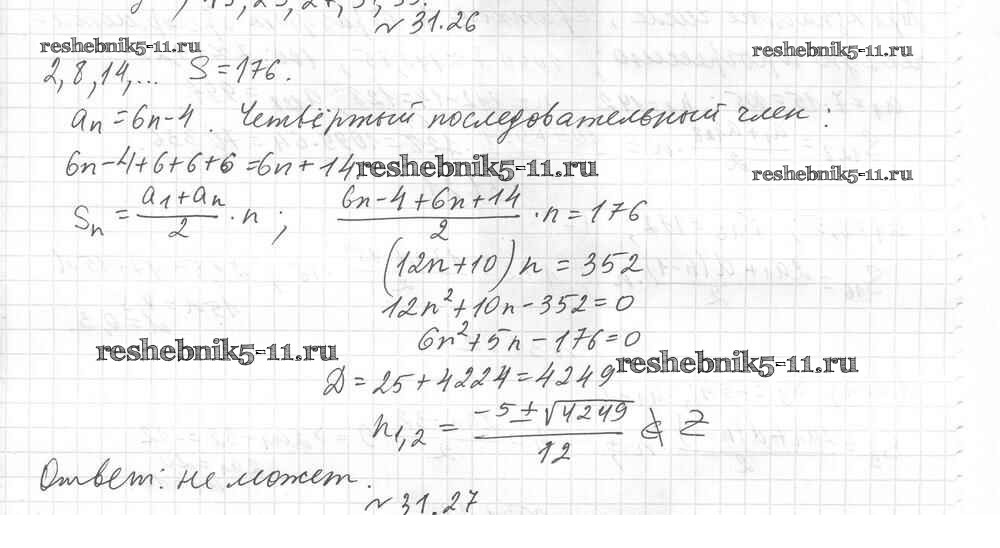 № 31.26
reshebnik5-11.ru
reshebnik5-11.ru
2, 8, 14, ... S = 176.
aₙ = 6n - 4. Четвёртый последовательный член:
6n - 4 + 6 + 6 + 6 = 6n + 14
reshebnik5-11.ru
reshebnik5-11.ru
Sₙ = (a₁ + aₙ)/2 · n ; (6n - 4 + 6n + 14)/2 · n = 176
(12n + 10) n = 352
12n² + 10n - 352 = 0
6n² + 5n - 176 = 0
reshebnik5-11.ru
reshebnik5-11.ru
D = 25 + 4224 = 4249
n₁,₂ = (-5 ± √4249)/12 ∉ Z
Ответ: не может.
№ 31.27